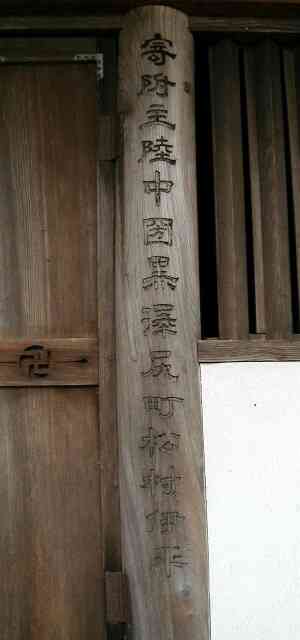 寄附主陸中圀黒澤尻町松村伊平